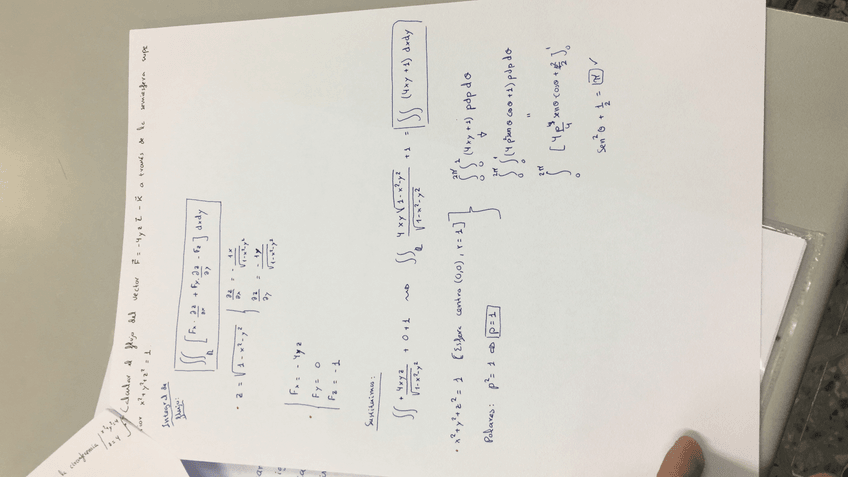 Calcular el flujo del vector F = -4yz i - k a través de la semiesfera supe
x²+y²+z² = 1
Integral de flujo:
∬_R [Fx · ∂z/∂x + Fy · ∂z/∂y - Fz] dxdy
· z = √(1-x²-y²)
∂z/∂x = - 1x/√(1-x²-y²)
∂z/∂y = - 1y/√(1-x²-y²)
· Fx = -4yz
Fy = 0
Fz = -1
Sustituimos:
∬ + 4xyz/√(1-x²-y²) + 0 + 1 ⇝ ∬_R 4xy√(1-x²-y²)/√(1-x²-y²) + 1 = ∬ (4xy+1) dxdy
· x²+y²+z² = 1 [Esfera centro (0,0), r=1]
Polares: ρ² = 1 ⇔ ρ=1
∫₀^2π ∫₀^1 (4xy+1) ρdρ dθ
∫₀^2π ∫₀^1 (4ρ² senθ cosθ +1) ρdρ dθ
"
∫₀^2π [4 ρ⁴/4 senθ cosθ + ρ²/2]₀^1
Sen²θ + 1/2 = π ✓